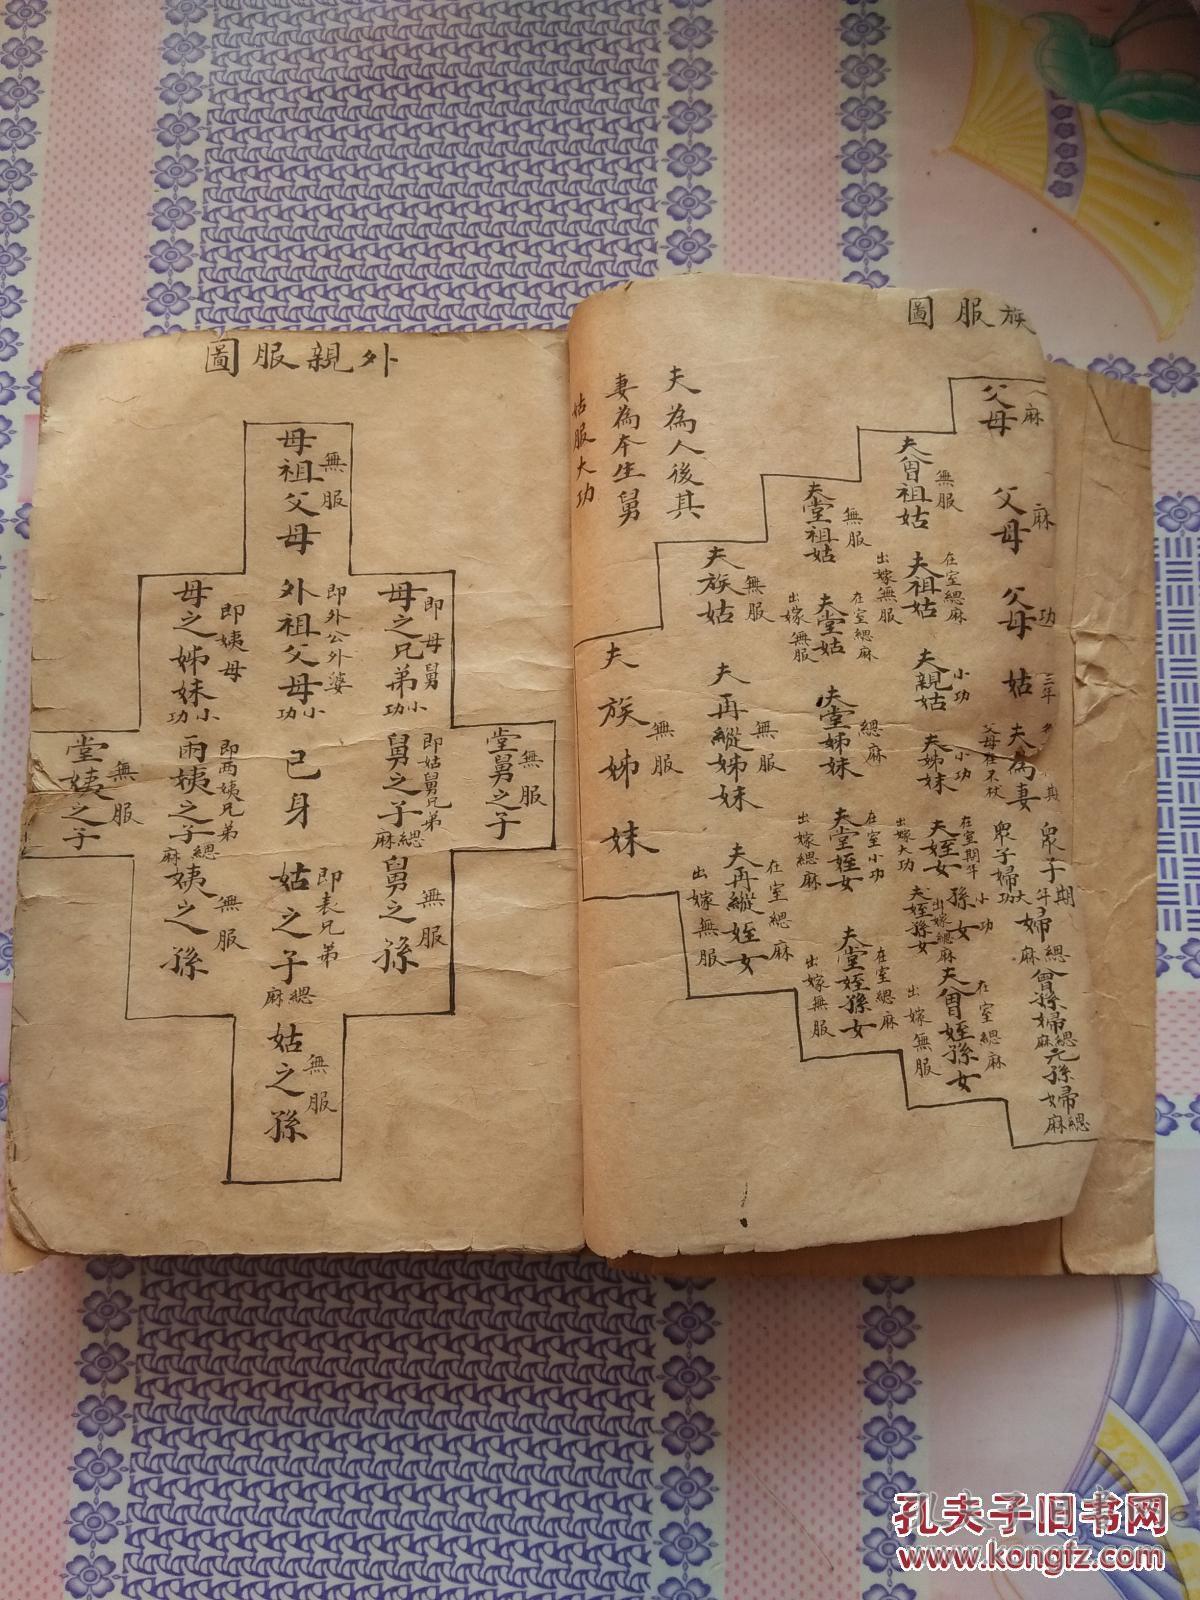 族服圖
父母
麻
父母
麻
父母
功
姑
三年
夫為妻
父母在不杖
期
眾子
期年
眾子婦
大功
婦
緦麻
曾孫婦
緦麻
元孫婦
緦麻
夫曾祖姑
無服
夫祖姑
在室緦麻
出嫁無服
夫親姑
小功
夫姊妹
小功
夫姪女
在室期年
出嫁大功
孫女
小功
夫姪孫女
出嫁緦麻
夫曾姪孫女
在室緦麻
出嫁無服
夫堂祖姑
無服
夫堂姑
在室緦麻
出嫁無服
夫堂姊妹
緦麻
夫堂姪女
在室小功
出嫁緦麻
夫堂姪孫女
在室緦麻
出嫁無服
夫族姑
無服
夫再縱姊妹
無服
夫再縱姪女
在室緦麻
出嫁無服
夫族姊妹
無服
夫為人後其
妻為本生舅
姑服大功
外親服圖
堂舅之子
無服
母之兄弟
即母舅
小功
舅之子
即姑舅兄弟
緦麻
舅之孫
無服
母祖父母
無服
外祖父母
即外公外婆
小功
己身
姑之子
即表兄弟
緦麻
姑之孫
無服
母之姊妹
即姨母
小功
兩姨之子
即两姨兄弟
緦麻
姨之孫
無服
堂姨之子
無服
孔夫子旧书网
www.kongfz.com